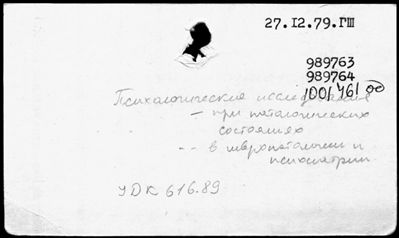 27.12.79.ГШ
989763
989764
1001761
Психологические исследования
— при патологических
состояниях
-- в невропатологии и
психиатрии
УДК 616.89